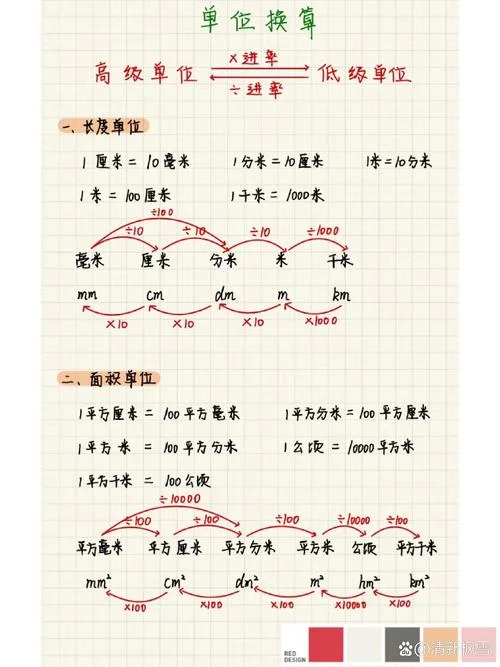 单位换算
×进率
高级单位 低级单位
÷进率
一、长度单位
1厘米=10毫米 1分米=10厘米 1米=10分米
1米=100厘米 1千米=1000米
÷100
÷10 ÷10 ÷10 ÷1000
毫米 厘米 分米 米 千米
mm cm dm m km
×10 ×10 ×10 ×1000
二、面积单位
1平方厘米=100平方毫米 1平方分米=100平方厘米
1平方米=100平方分米 1公顷=10000平方米
1平方千米=100公顷
÷10000
÷100 ÷100 ÷100 ÷10000 ÷100
平方毫米 平方厘米 平方分米 平方米 公顷 平方千米
mm² cm² dm² m² hm² km²
×100 ×100 ×100 ×10000 ×100
RED
DESIGN
清新枫雪